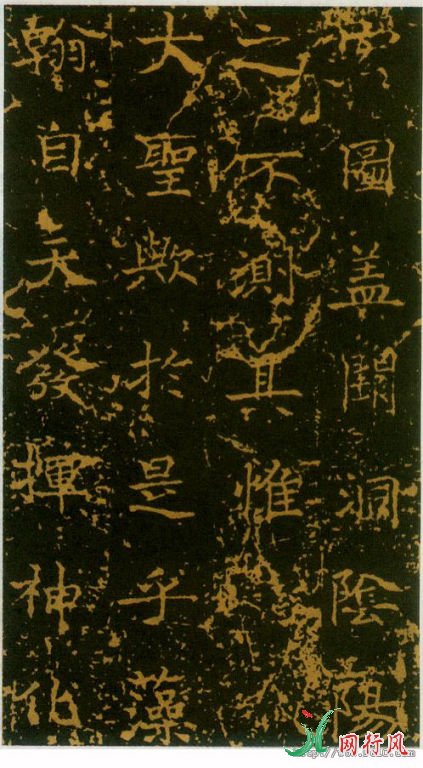 圖盖洞陰陽
之不測其惟
大聖歟於是乎藻
翰自天發揮神化
网行风